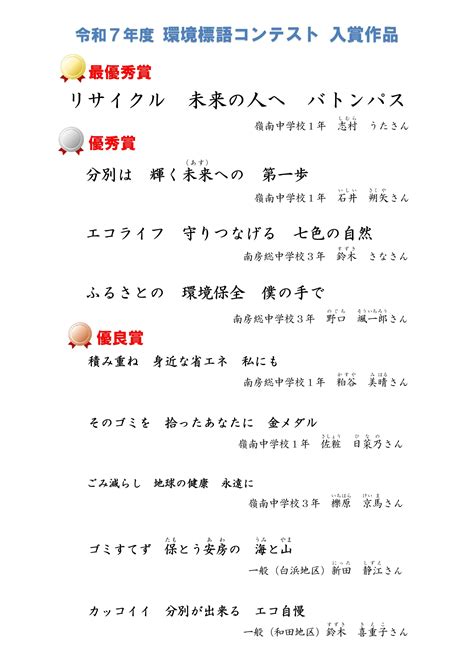 令和７年度 環境標語コンテスト 入賞作品
最優秀賞
リサイクル　未来の人へ　バトンパス
嶺南中学校１年　志村（しむら）　うたさん
優秀賞
分別は　輝く未来（あす）への　第一歩
嶺南中学校１年　石井（いしい）　朔矢（さくや）さん
エコライフ　守りつなげる　七色の自然
南房総中学校３年　鈴木（すずき）　さなさん
ふるさとの　環境保全　僕の手で
南房総中学校３年　野口（のぐち）　颯一郎（そういちろう）さん
優良賞
積み重ね　身近な省エネ　私にも
南房総中学校１年　粕谷（かすや）　美晴（みはる）さん
そのゴミを　拾ったあなたに　金メダル
嶺南中学校１年　佐粧（さしょう）　日菜乃（ひなの）さん
ごみ減らし　地球の健康　永遠に
嶺南中学校３年　櫟原（いちはら）　京馬（けいま）さん
ゴミすてず　保（たも）とう安房（あわ）の　海（うみ）と山（やま）
一般（白浜地区）新田（にった）　静江（しずえ）さん
カッコイイ　分別が出来る　エコ自慢
一般（和田地区）鈴木（すずき）　喜重子（きえこ）さん